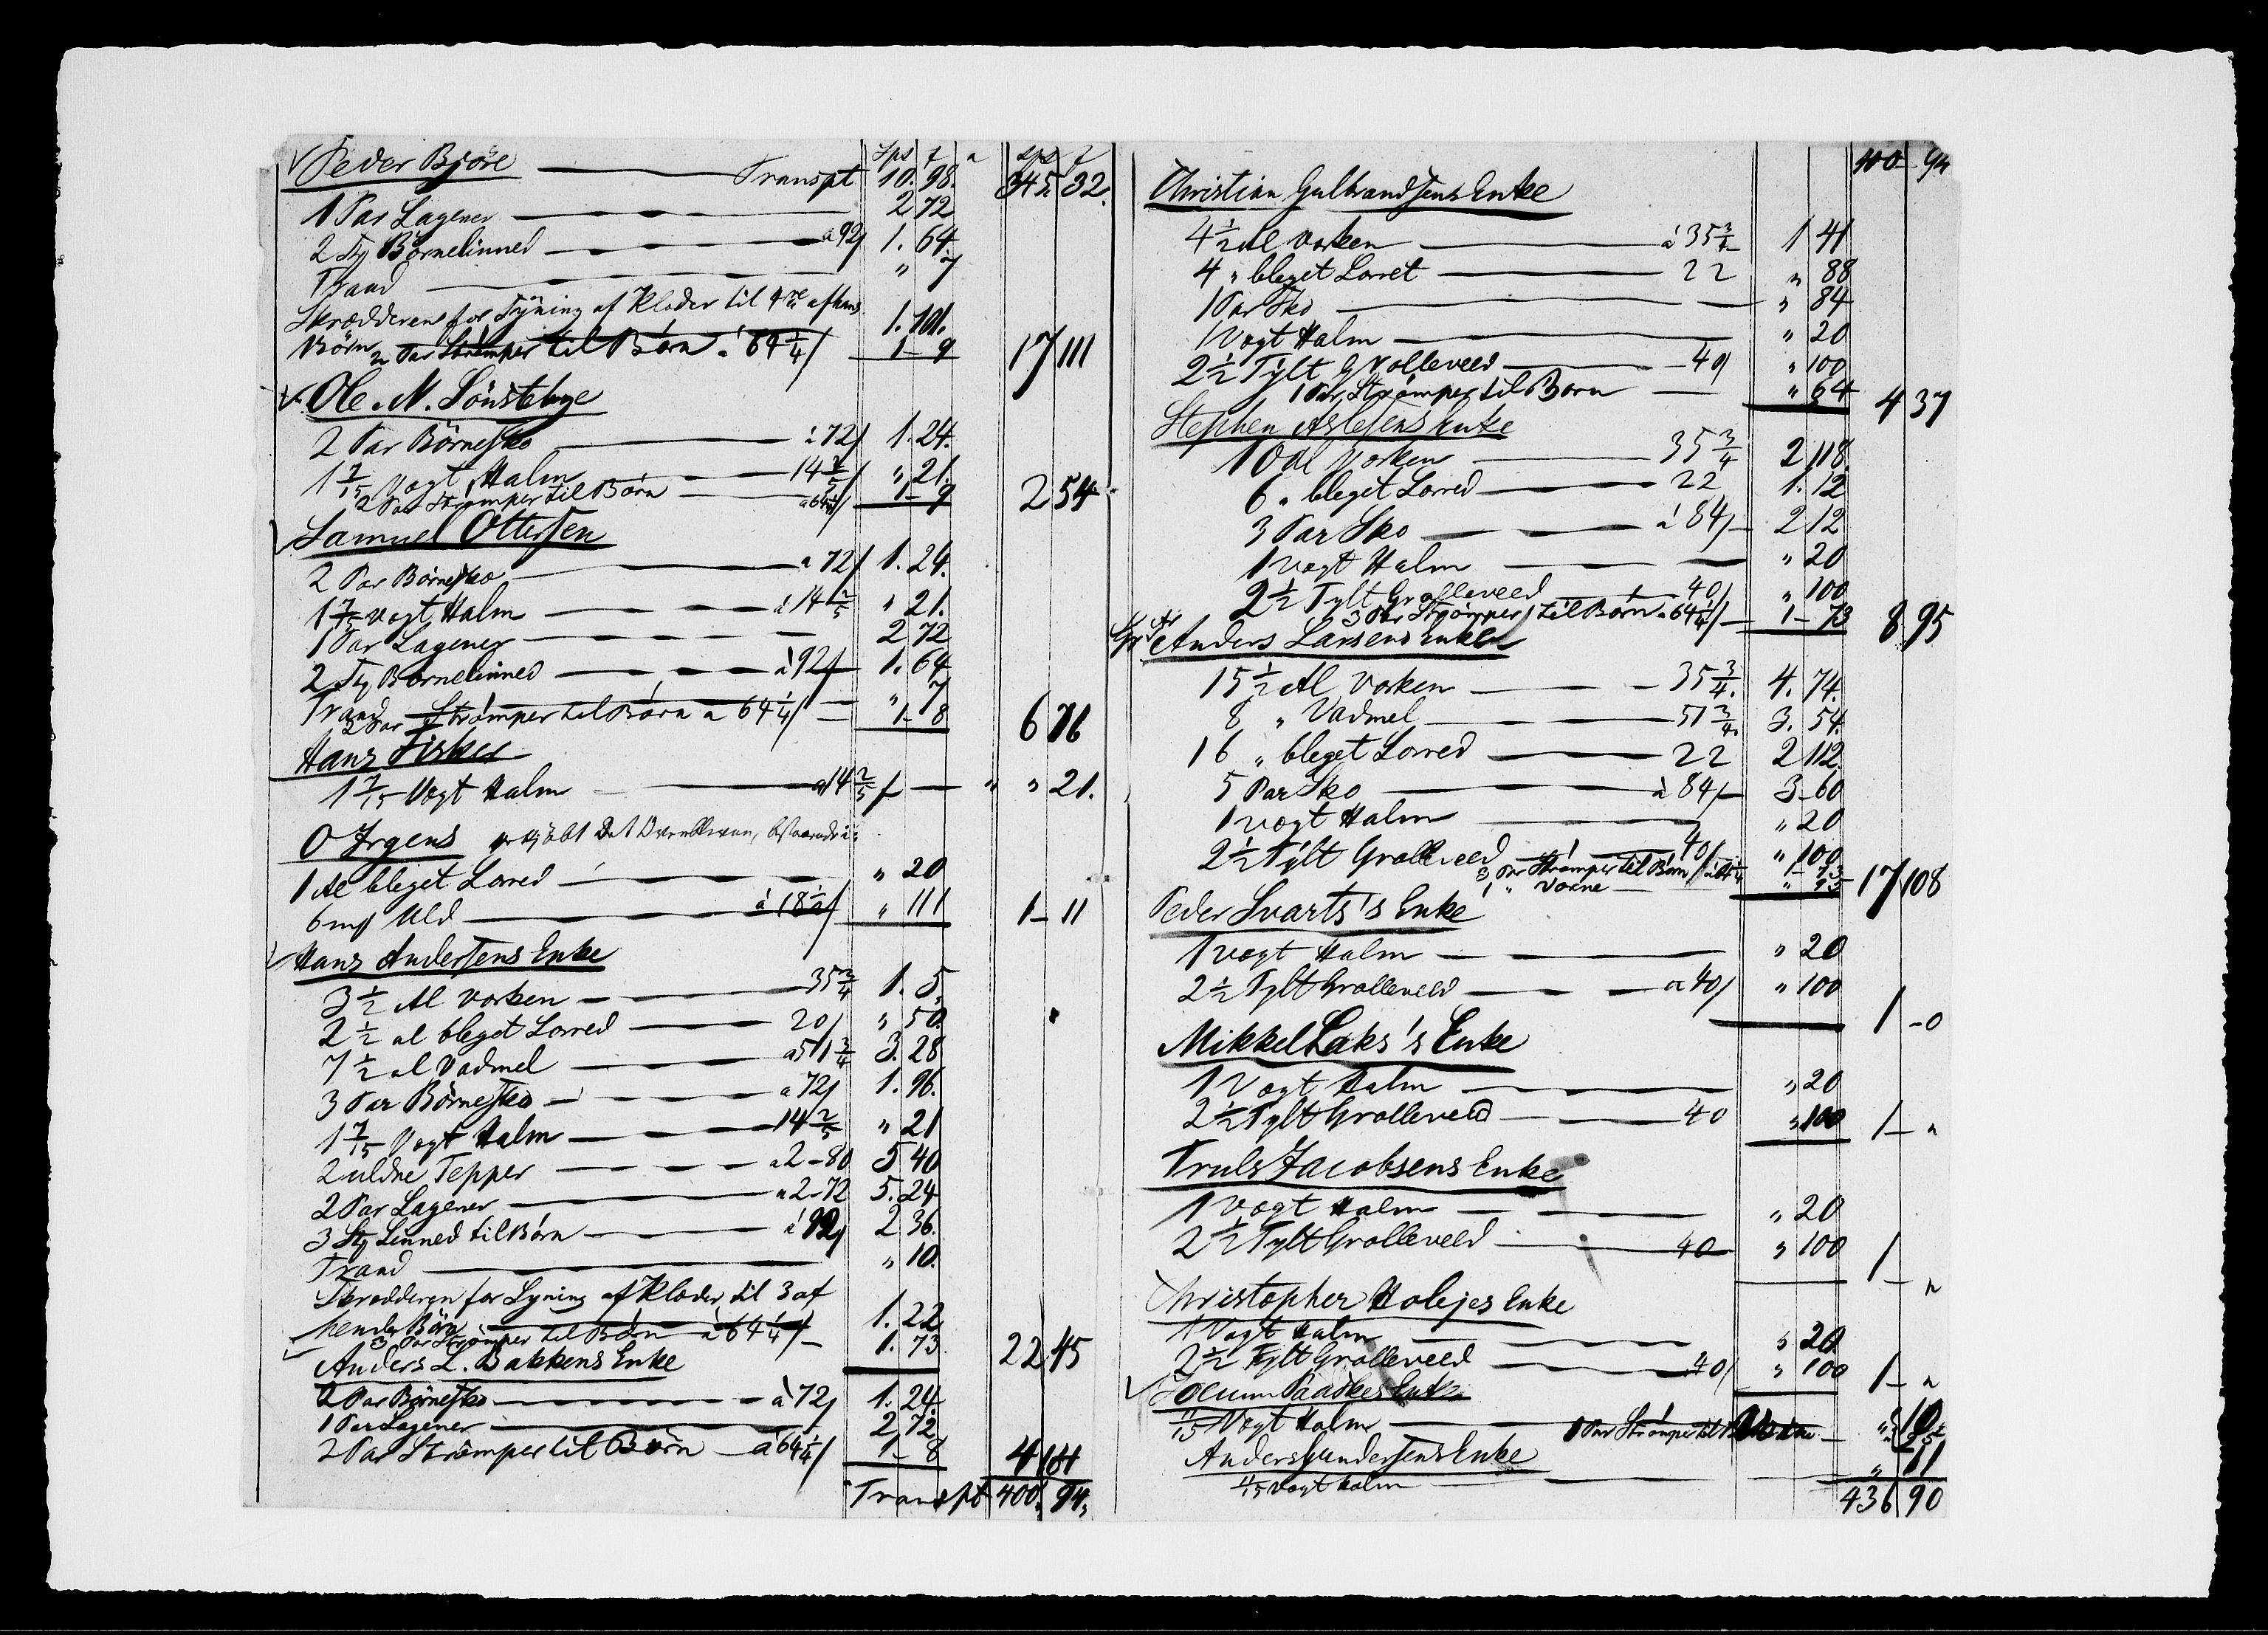 Sps ſ
Sps ſ
Peder Björe — Transpt 10. 98. 345. 32.
1 Par Lagener — 2 72
2 Stj Börnelinned — a 92ſ 1. 64.
Traad — " 7
Skrædderen for Syning af Klæder til 4re af hans
Börn 1. 101.
2 Par Strömper til Börn a 64 1/4ſ 1 - 9 17 111
Ole. N. Sönsteby
2 Par Börnesko — a 72ſ 1. 24.
1 7/15 Vogt Halm — 14 2/5ſ " 21.
2 Par Strömper til Börn — a 64 1/4ſ 1 - 9 2 54
Samuel Ottersen
2 Par Börnesko — a 72ſ 1. 24.
1 7/15 vogt Halm — a 14 2/5 " 21.
1 Par Lagener — 2 72
2 Stj Börnelinned — a 92ſ 1. 64
Traad — " 7
2 Par Strömper til Börn a 64 1/4ſ — 1 - 8 6 76
Hans Fisker
1 7/15 Vogt Halm — a 14 2/5 ſ — " " 21.
O Irgens
1 Al bleget Lærred — " 20
6 mſ Uld — a 18 1/2ſ " 111 1 - 11
Hans Andersens Enke
3 1/2 Al vorken — 35 3/4 1. 5.
2 1/2 al bleget Lorred — 20ſ " 50.
7 1/2 al Vadmel — a 51 3/4 3. 28
3 Par Börnesko — a 72ſ 1. 96.
1 7/15 Vogt Halm — 14 2/5 " 21
2 uldne Tepper — a 2-80 5 40
2 Par Lagener — a 2-72 5. 24
3 Stj Linned til Börn — a 92ſ 2 36.
Traad — " 10.
Skrædderen for Syning af Klæder til 3 af
hendes Börn — 1. 22
3 Par Strömper til Börn a 64 1/4ſ — 1. 73 22 45
Anders L. Bakkens Enke
2 Par Börnesko — a 72ſ 1. 24.
1 Par Lagener — 2 72
2 Par Strömper til Börn — a 64 1/4ſ 1 - 8 4 104
Transpt 400. 94.
400 94
Christian Gulbrandsens Enke
4 1/2 Al Vorken — a 35 3/4 1 41
4 " bleget Lorret — 22 " 88
1 Par Sko — " 84
1 Vogt Halm — " 20
2 1/2 Tylt Grolleveed — 40ſ " 100
1 Par Strömper til Born — " 64 4 37
Stephen Aslesens Enke
10 Al Vorken — 35 3/4 2 118.
6 " bleget Lorred — 22 1. 12
3 Par Sko — a 84ſ 2 12
1 vogt Halm — " 20
2 1/2 Tylt Grolleveed — 40ſ " 100
3 Par Strömper til Börn a 64 1/4ſ — 1 - 73 8 95
Anders Larsens Enke
15 1/2 Al Vorken — 35 3/4. 4. 74.
8 " Vadmel — 51 3/4 3. 54.
16 " bleget Lorred — 22 2 112.
5 Par Sko — a 84ſ 3 - 60
1 vogt Halm — " 20
2 1/2 Tylt Grolleveed — 40ſ " 100
3 Par Strömper til Börn a 64 1/4 1 - 73
1 " Voxne — 17 108
Peder Svarts's Enke
1 vogt Halm — " 20
2 1/2 Tylt Grolleveed — a 40ſ " 100
1 - 0
Mikkel Laks's Enke
1 Vogt Halm — " 20
2 1/2 Tylt Grolleveed — 40 " 100 1 - "
Truls Jacobsens Enke
1 Vogt Halm — " 20
2 1/2 Tylt Grolleveed — 40 " 100 1 - "
Christopher Holejes Enke
1 Vogt Halm — " 20
2 1/2 Tylt Grolleveed — 40ſ " 100 1 - "
Paaskes Enke
11/15 Vogt Halm — 1 Par Strömper til — " 10
Anders Gundersens Enke
11/15 Vogt Halm — " 11
436 90